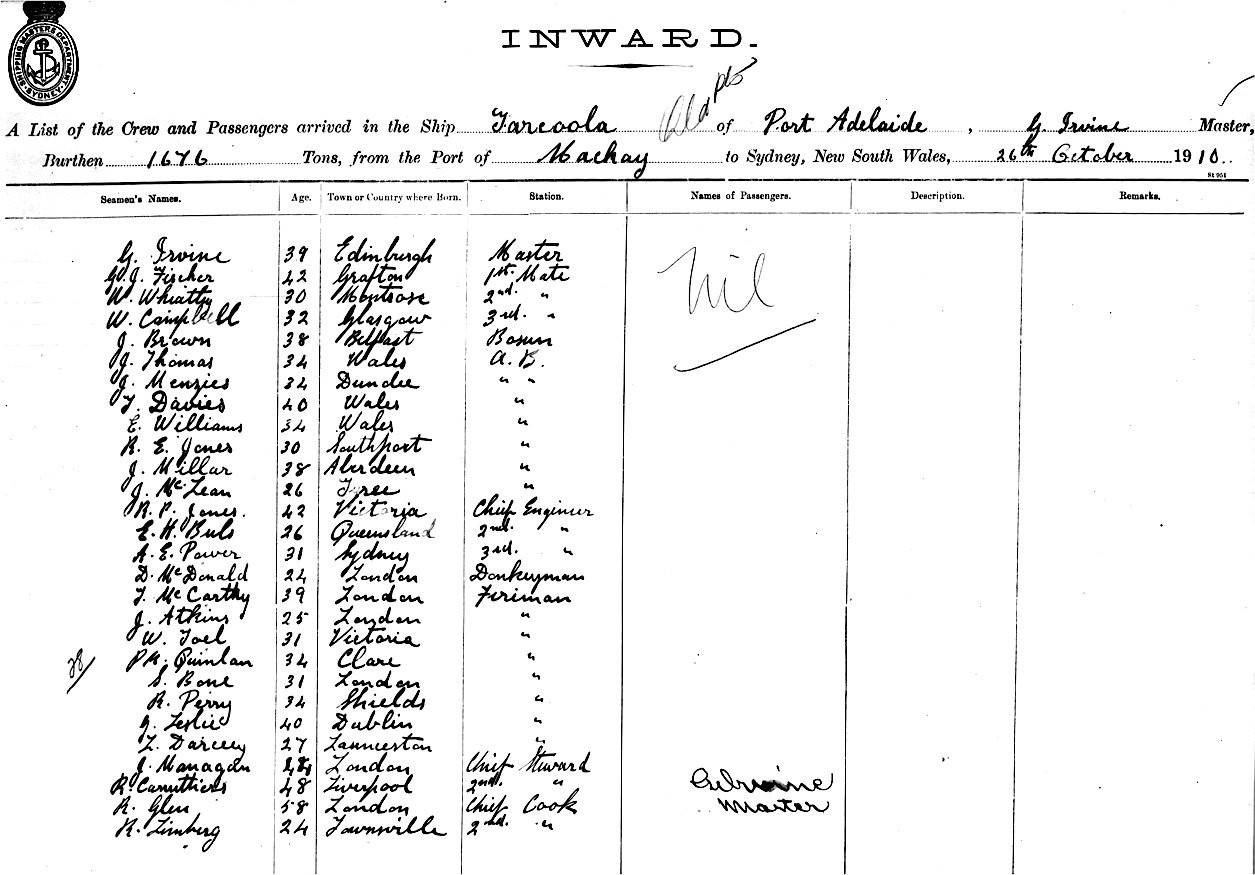 SHIPPING MASTERS DEPARTMENT SYDNEY
INWARD.
A List of the Crew and Passengers arrived in the Ship Tarcoola of Port Adelaide, G. Irvine Master,
Burthen 1676 Tons, from the Port of Mackay to Sydney, New South Wales, 26th October 1910.
St 951
Seamen's Names. Age. Town or Country where Born. Station. Names of Passengers. Description. Remarks.
G. Irvine 39 Edinburgh Master
Nil
G. J. Fischer 42 Grafton 1st. Mate
W. 30 Montrose 2nd. "
W. Campbell 32 Glasgow 3rd. "
J. Brown 38 Belfast Bosun
J. Thomas 34 Wales A.B.
J. Menzies 32 Dundee " "
T. Davies 40 Wales "
E. Williams 34 Wales "
R. E. Jones 30 Southport "
J. Millar 38 Aberdeen "
J. McLean 26 Tyree "
R. P. Jones. 42 Victoria Chief Engineer
E. H. Buls 26 Queensland 2nd. "
A. E. Power 31 Sydney 3rd. "
D. McDonald 24 London Donkeyman
T. McCarthy 39 London Fireman
J. Atkins 25 London "
W. Joel 31 Victoria "
28 Pk. Quinlan 34 Clare "
S. Bone 31 London "
R. Perry 34 Shields "
G. Leslie 40 Dublin "
L. Darcey 27 Launceston "
J. Managan London Chief Steward
R. Carruthers 48 Liverpool 2nd. " G Irvine
R. Glen 58 London Chief Cook Master
R. Limberg 24 Townsville 2nd. "